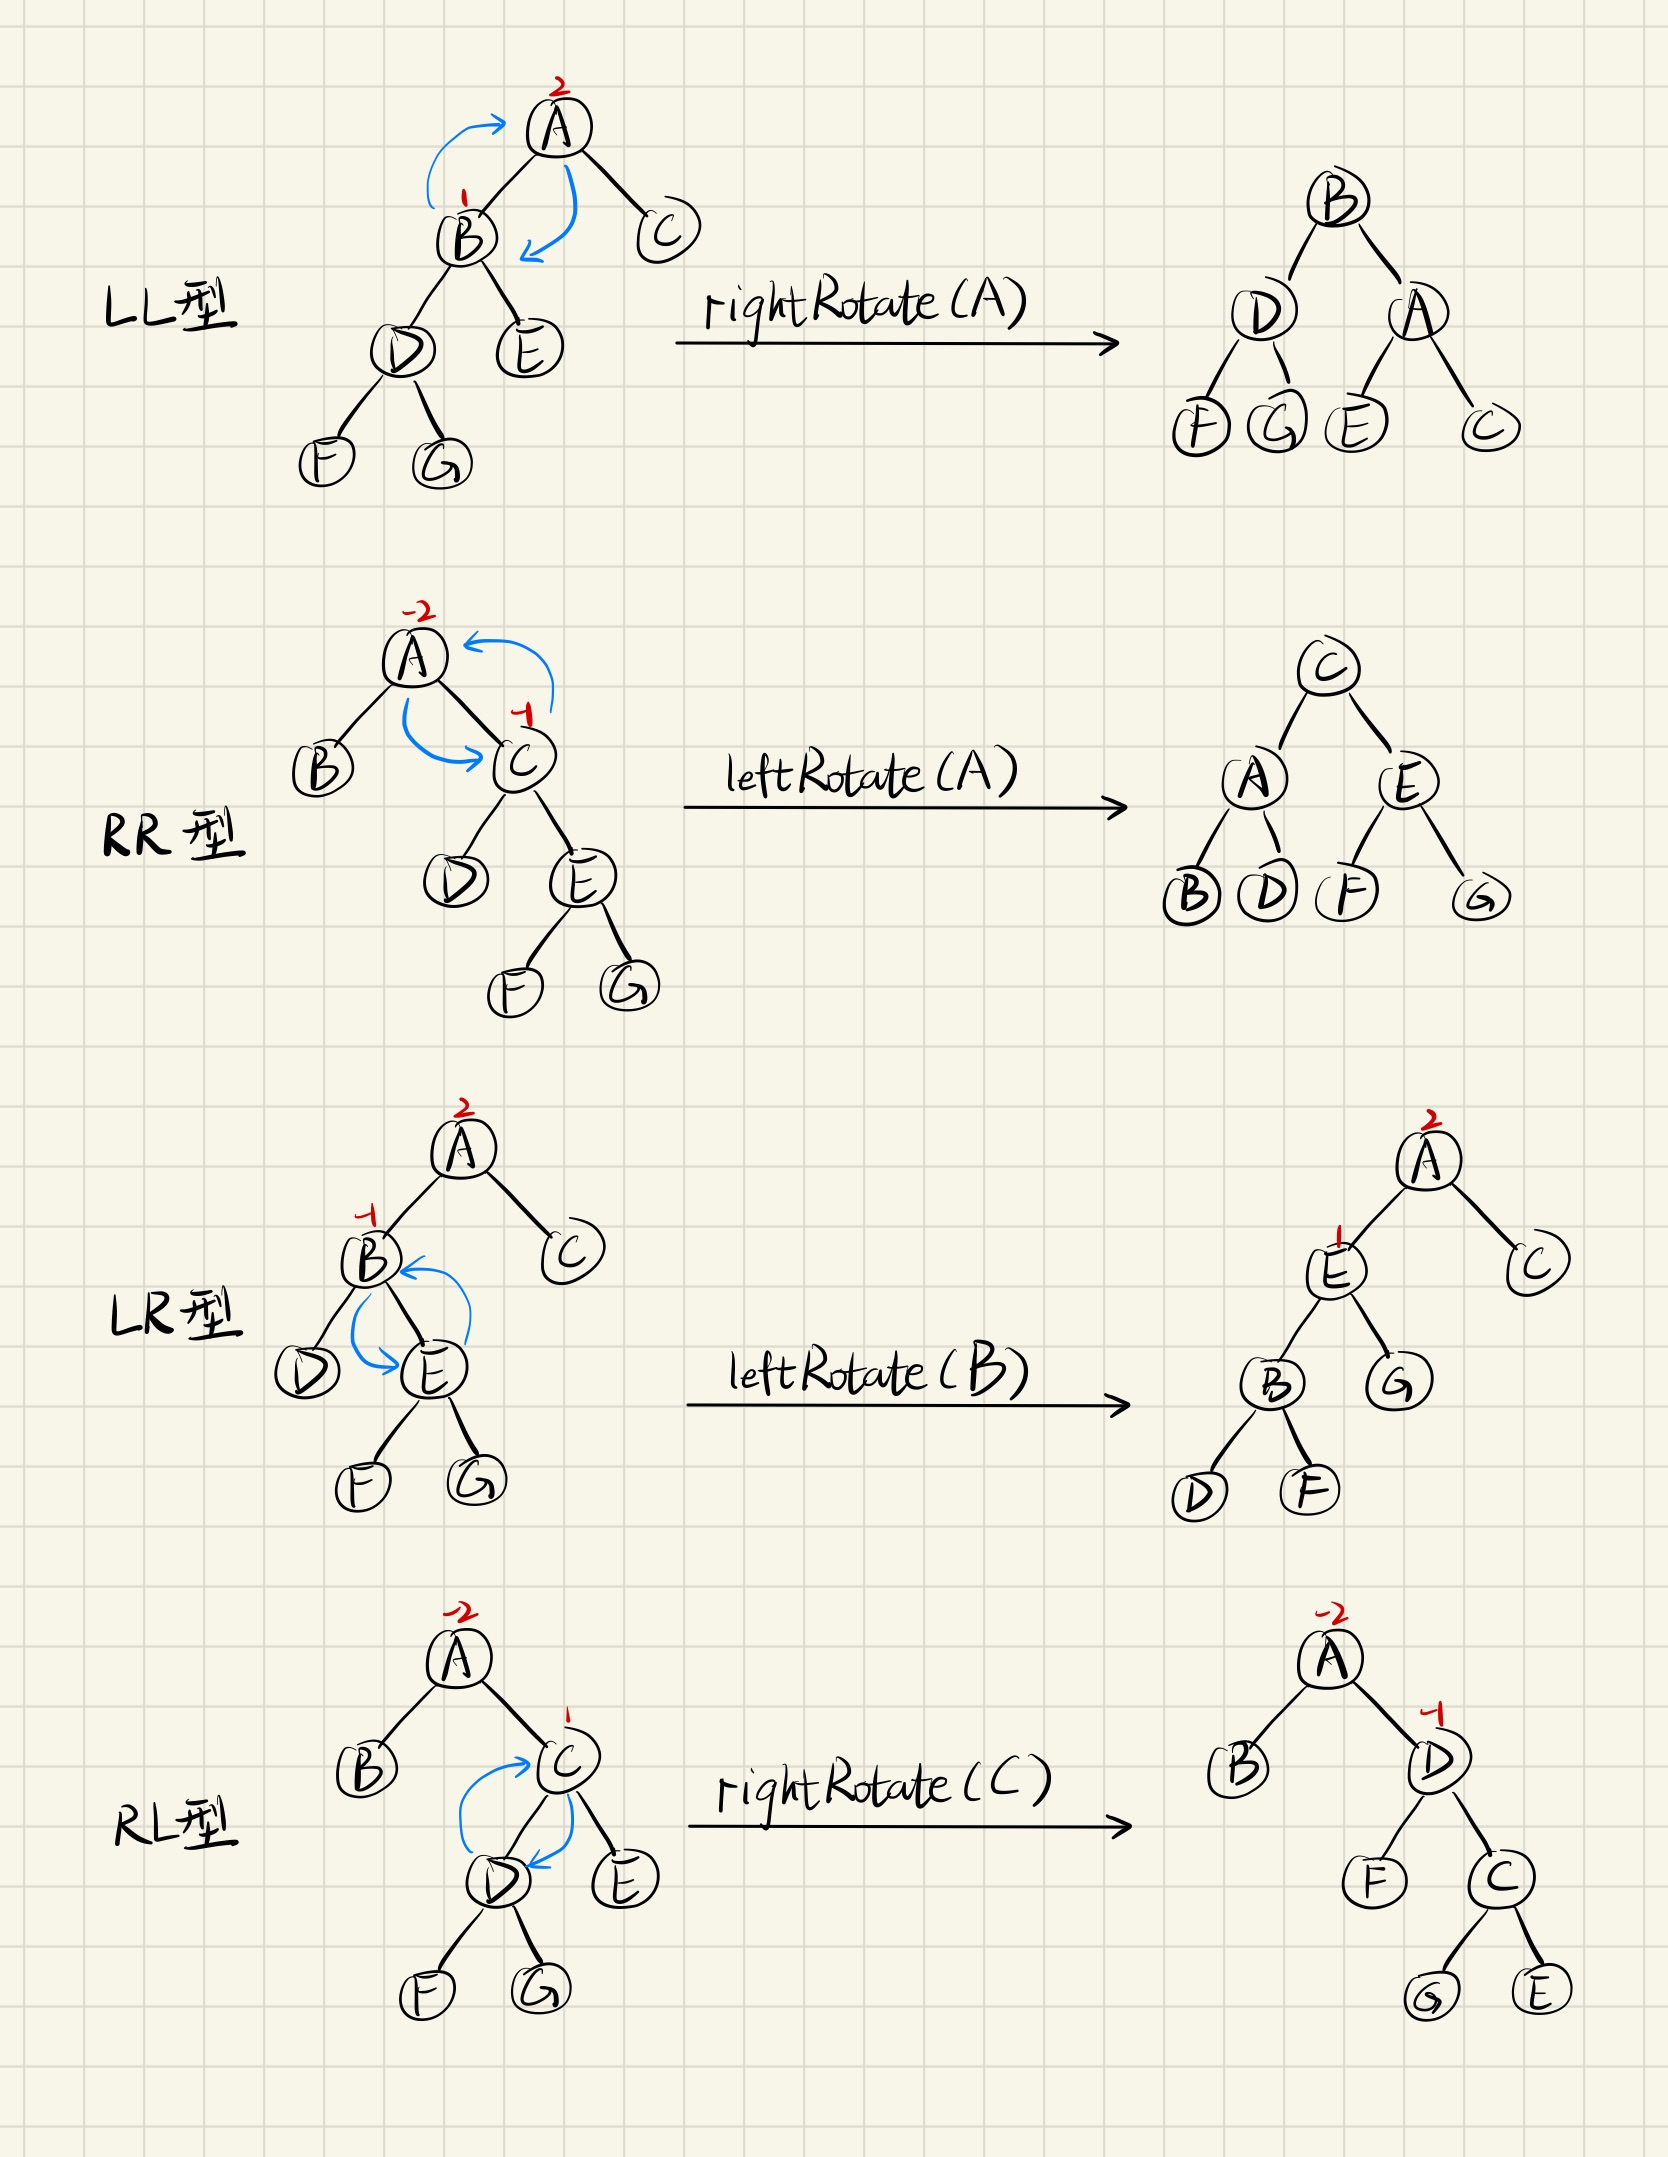 2
A
1
B
C
LL型
D
E
F
G
rightRotate(A)
B
D
A
F
G
E
C
-2
A
-1
B
C
RR型
D
E
F
G
leftRotate(A)
C
A
E
B
D
F
G
2
A
-1
B
C
LR型
D
E
F
G
leftRotate(B)
2
A
1
E
C
B
G
D
F
-2
A
1
B
C
RL型
D
E
F
G
rightRotate(C)
-2
A
-1
B
D
F
C
G
E